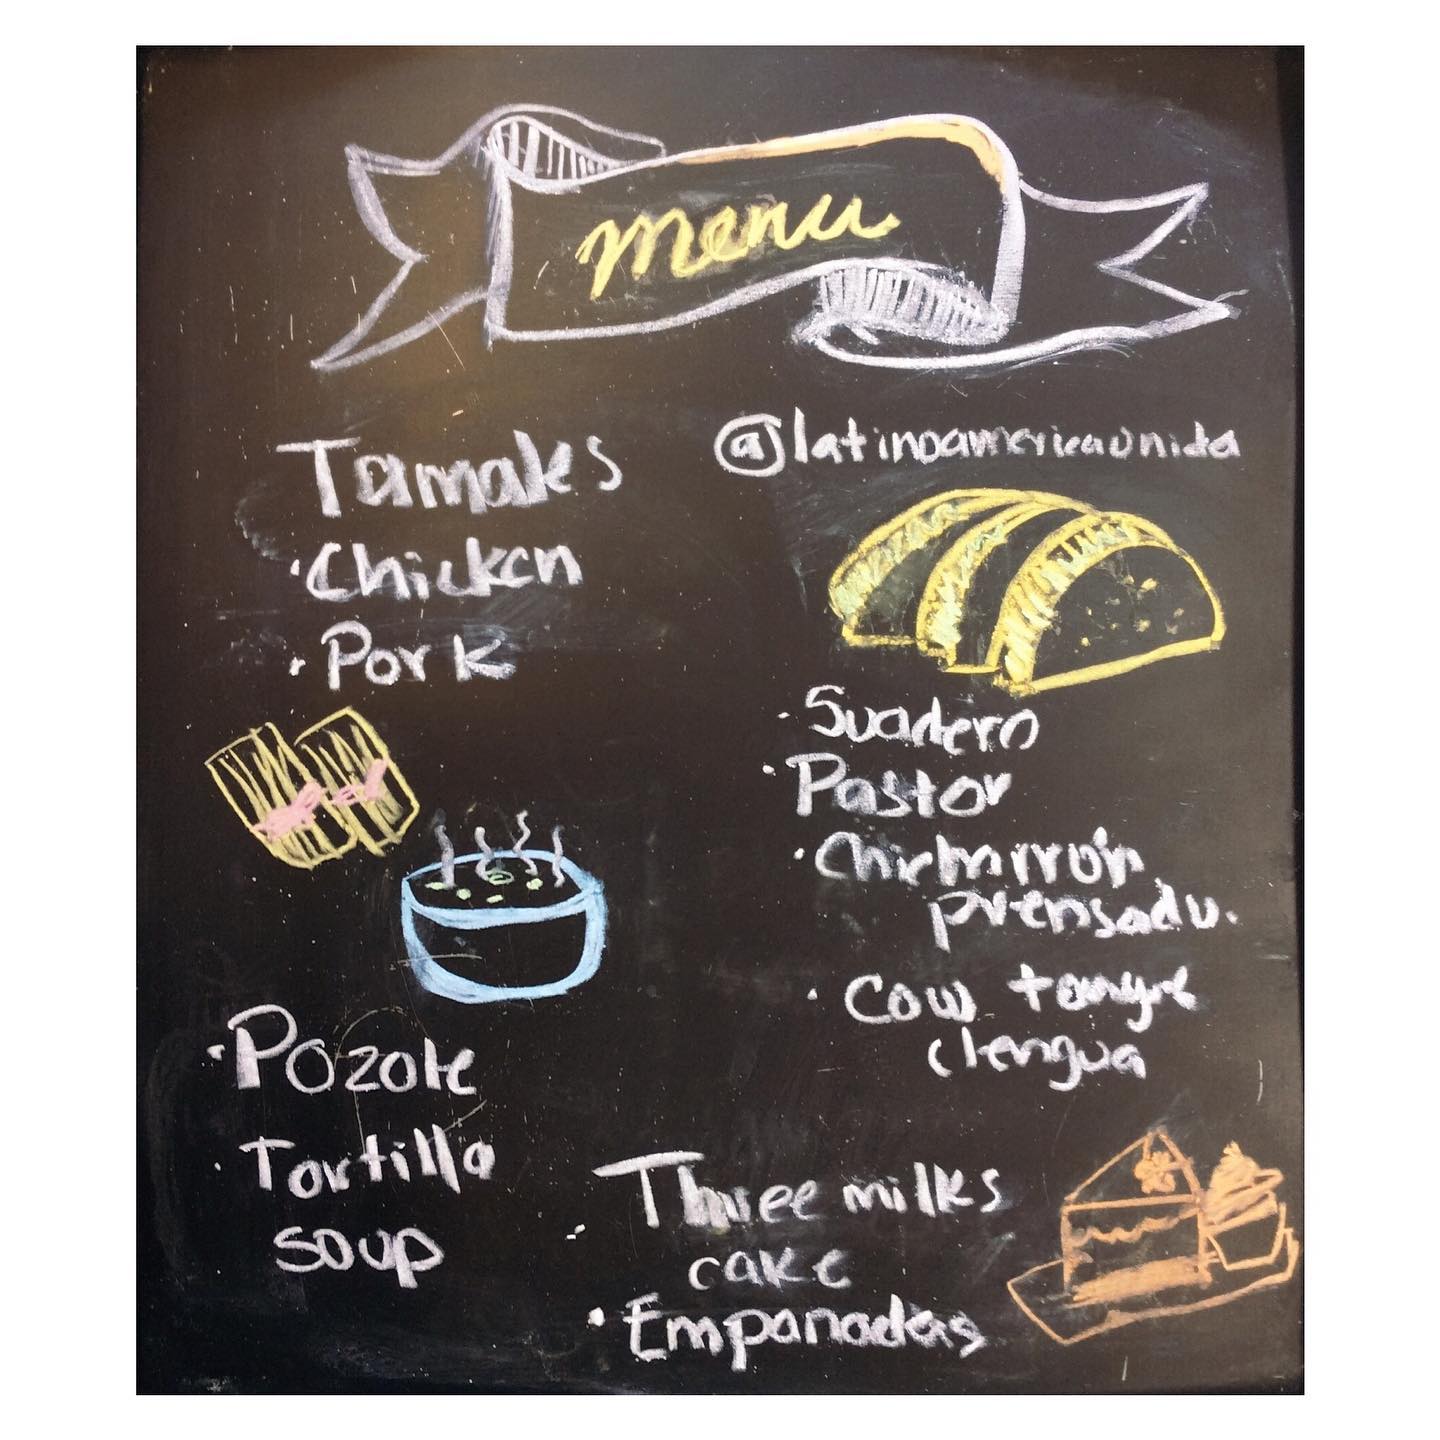 menu
Tamales
· Chicken
· Pork
· Pozole
· Tortilla
soup
@latinoamericaunida
· Suadero
· Pastor
· Chicharrón
prensadu.
· Cow tongue
(lengua
· Three milks
cake
· Empanadas